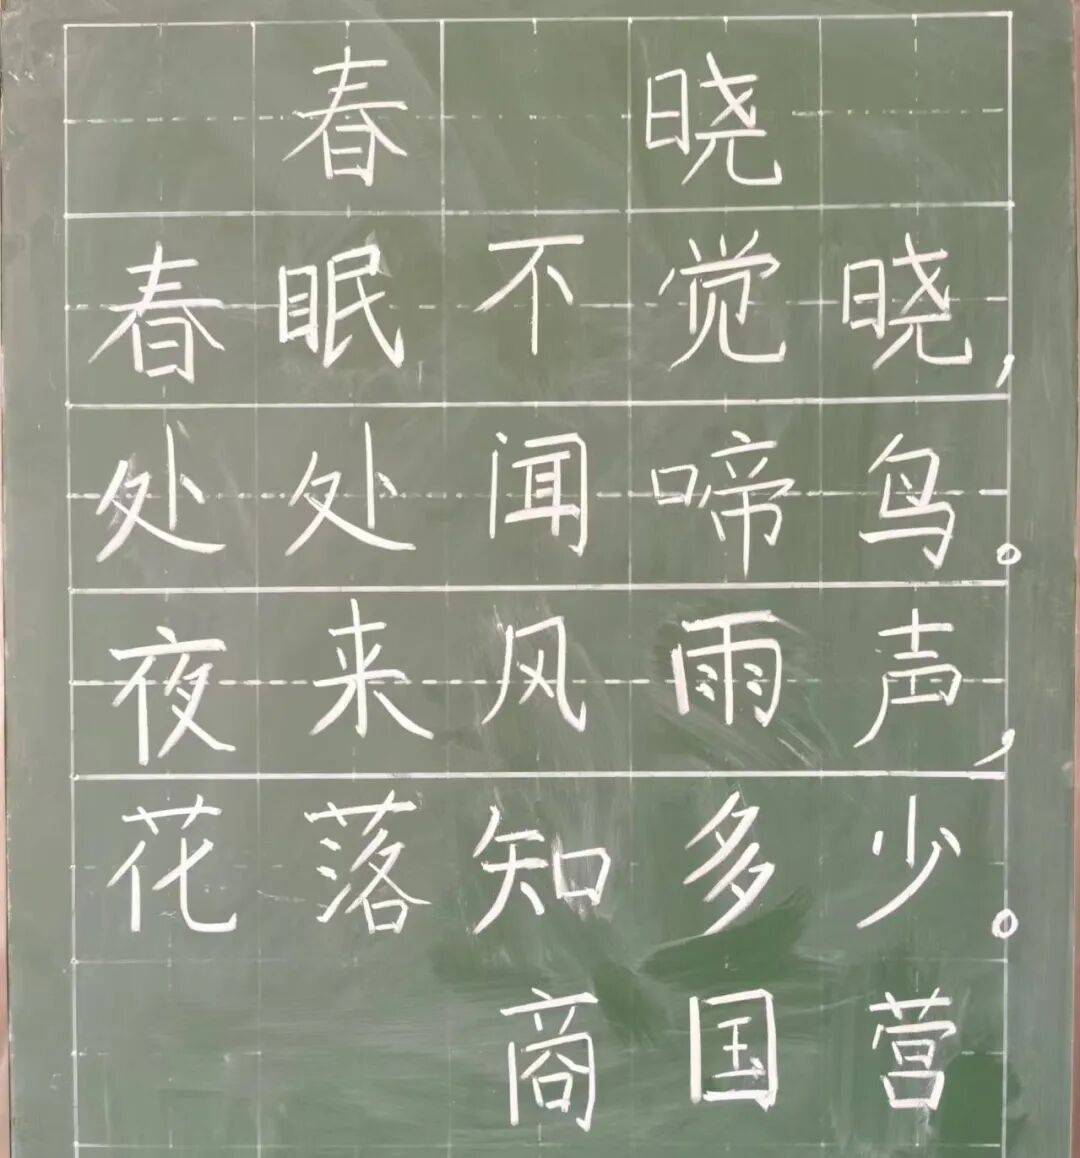 春晓
春眠不觉晓,
处处闻啼鸟。
夜来风雨声,
花落知多少。
商国营